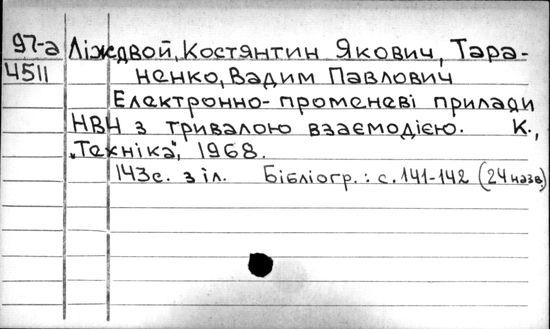 97-а Ліждвой, Костянтин Якович, Тара-
4511 ненко, Вадим Павлович
Електронно-променеві прилади
НВЧ з тривалою взаємодією. К.,
„Техніка", 1968.
143с. з іл. Бібліогр.: с. 141-142 (24 назв.)